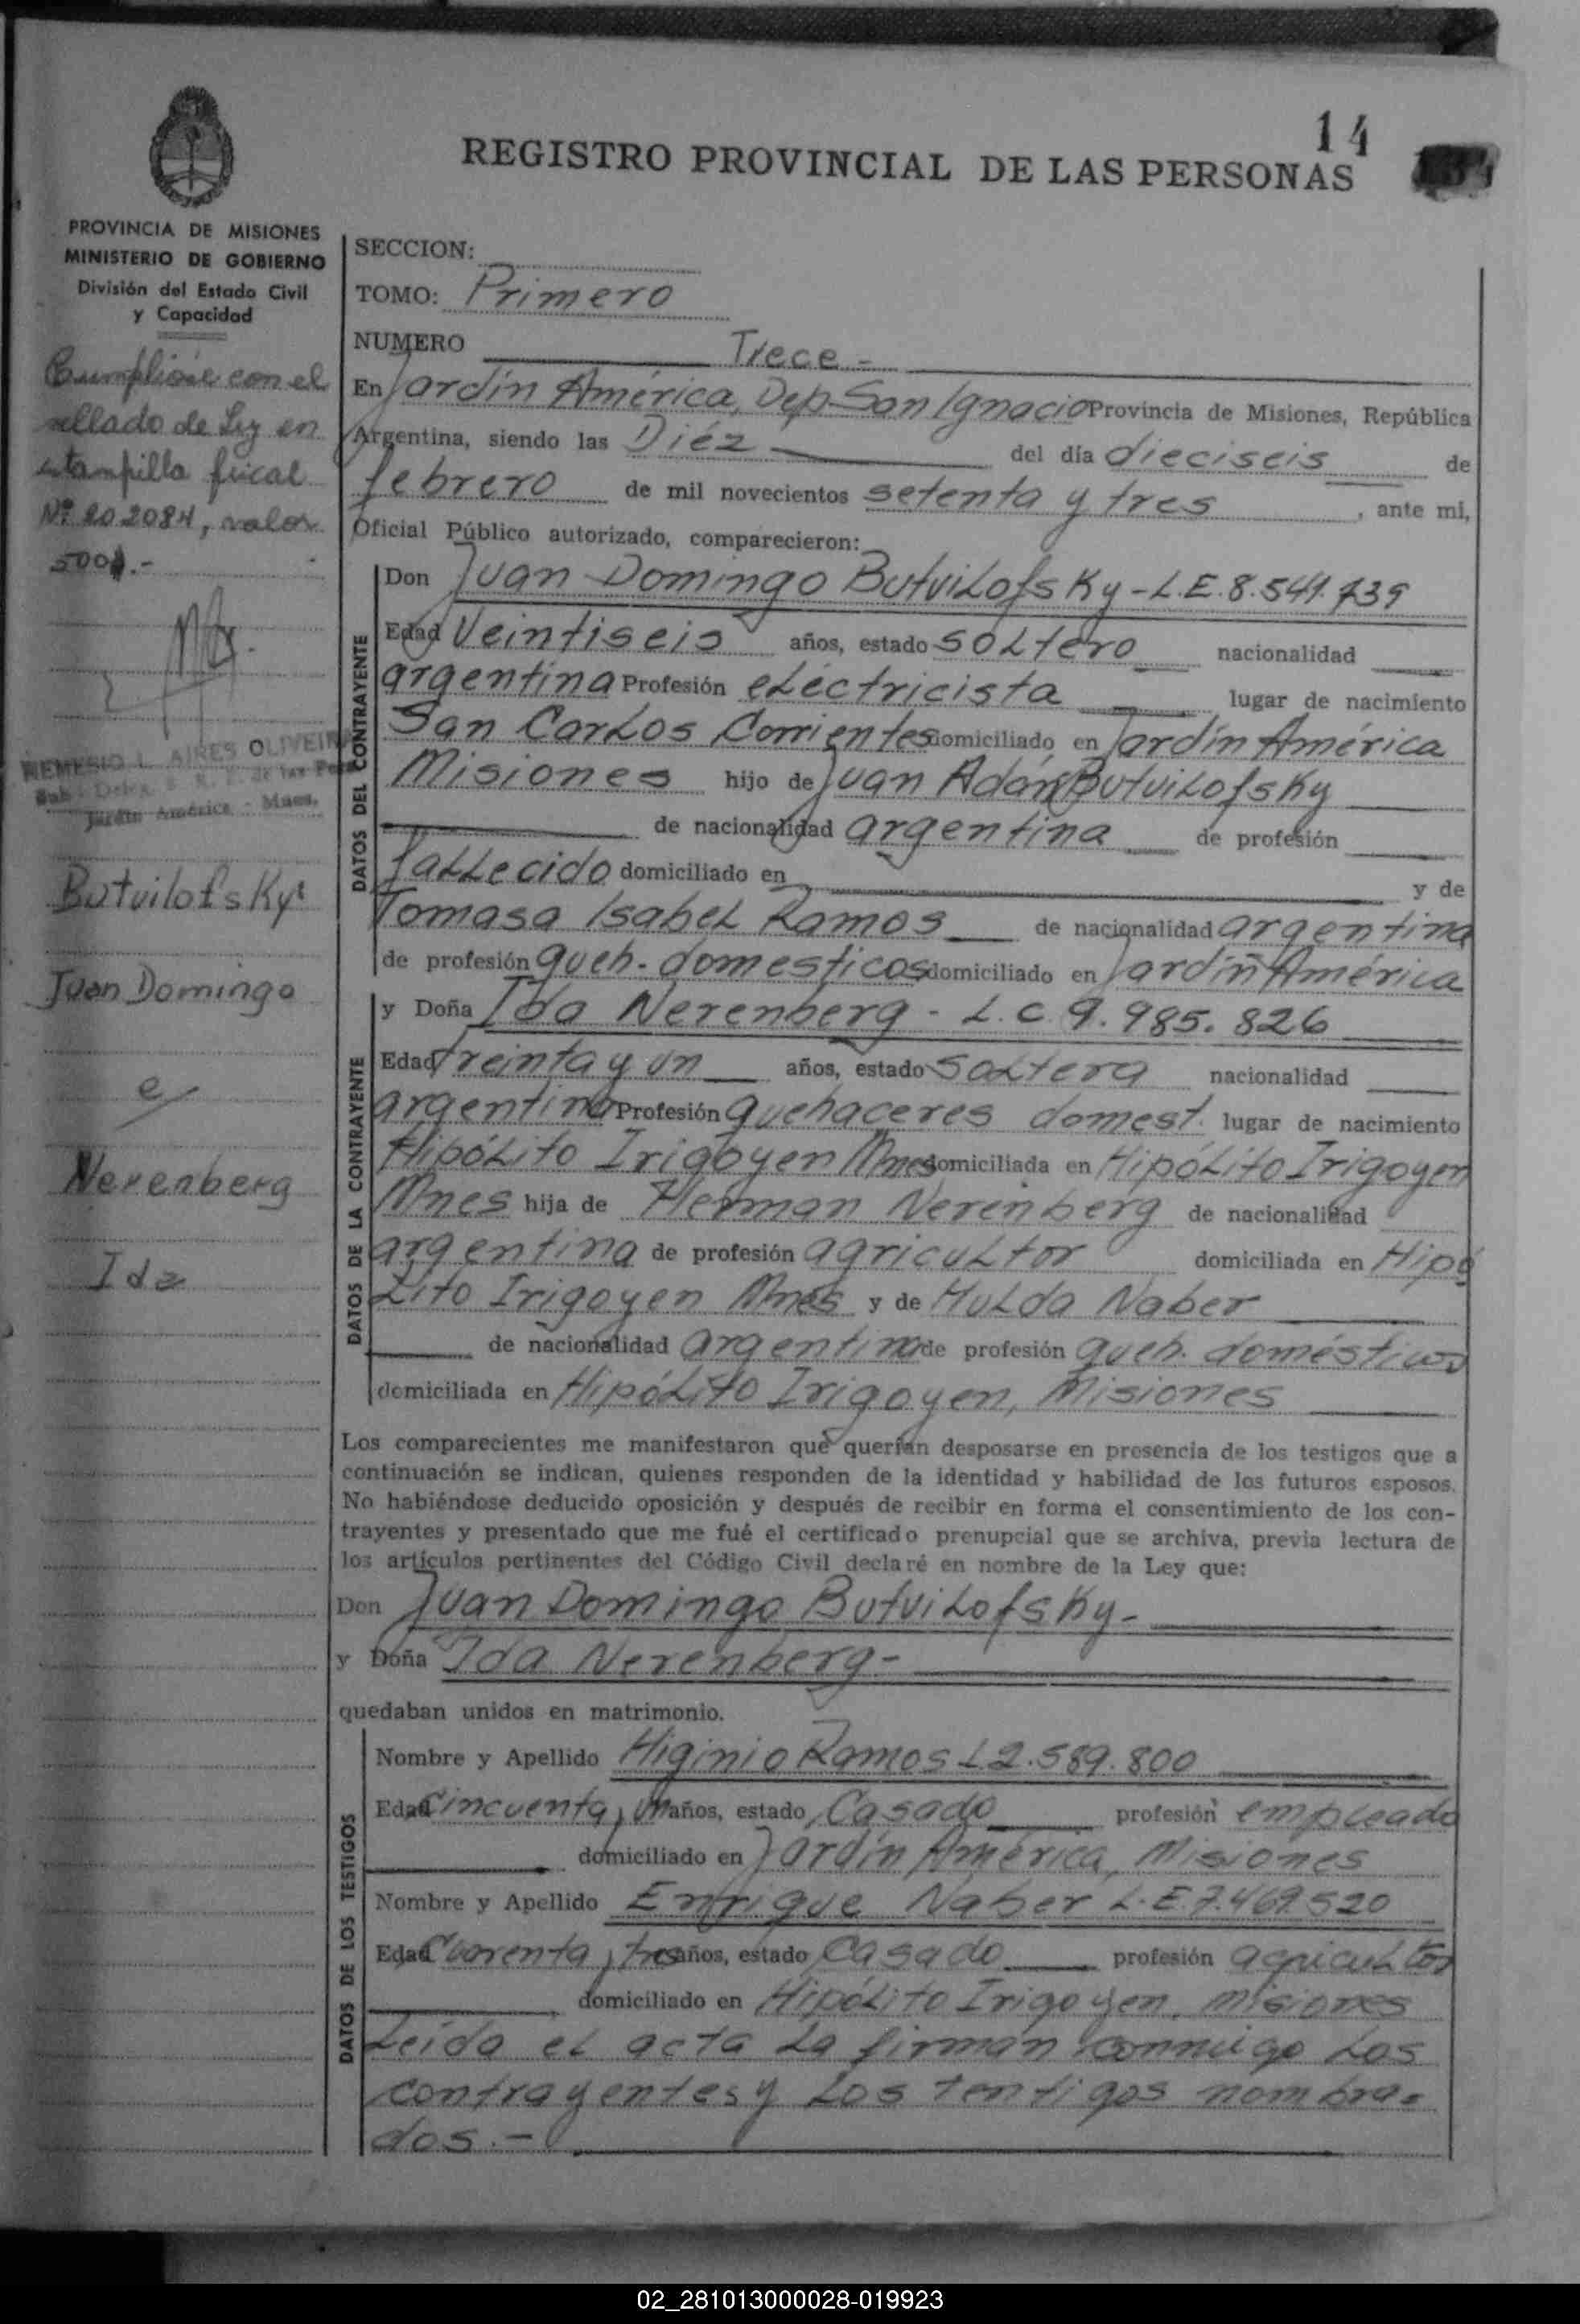 14
REGISTRO PROVINCIAL DE LAS PERSONAS
PROVINCIA DE MISIONES
MINISTERIO DE GOBIERNO
División del Estado Civil
y Capacidad
Cumplióse con el
sellado de Ley en
estampilla fiscal
Nº 202084, valor
500$.-
NEMESIO L. AIRES OLIVEIRA
Sub - Deleg. R. P. de las Pers.
Jardín América - Mnes.
Butvilofsky
Juan Domingo
e/
Nerenberg
Ida
SECCION:
TOMO: Primero
NUMERO Trece -
En Jardín América, Dep. San Ignacio Provincia de Misiones, República
Argentina, siendo las Diéz del día dieciseis de
febrero de mil novecientos setenta y tres, ante mi,
Oficial Público autorizado, comparecieron:
DATOS DEL CONTRAYENTE
Don Juan Domingo Butvilofsky - L.E. 8.541.739
Edad Veintiseis años, estado soltero nacionalidad
argentina Profesión electricista lugar de nacimiento
San Carlos Corrientes domiciliado en Jardín América
Misiones hijo de Juan Adán Butvilofsky
de nacionalidad argentina de profesión
fallecido domiciliado en y de
Tomasa Isabel Ramos de nacionalidad argentina
de profesión queh. domesticos domiciliado en Jardín América
DATOS DE LA CONTRAYENTE
y Doña Ida Nerenberg - L.C. 9.985.826
Edad treinta y un años, estado soltera nacionalidad
argentina Profesión quehaceres domest. lugar de nacimiento
Hipólito Irigoyen Mnes domiciliada en Hipólito Irigoyen
Mnes hija de Herman Nerenberg de nacionalidad
argentina de profesión agricultor domiciliada en Hipó
lito Irigoyen Mnes y de Hulda Naber
de nacionalidad argentina de profesión queh. domésticos
domiciliada en Hipólito Irigoyen, Misiones
Los comparecientes me manifestaron que querían desposarse en presencia de los testigos que a
continuación se indican, quienes responden de la identidad y habilidad de los futuros esposos.
No habiéndose deducido oposición y después de recibir en forma el consentimiento de los con-
trayentes y presentado que me fué el certificado prenupcial que se archiva, previa lectura de
los artículos pertinentes del Código Civil declaré en nombre de la Ley que:
Don Juan Domingo Butvilofsky -
y Doña Ida Nerenberg -
quedaban unidos en matrimonio.
DATOS DE LOS TESTIGOS
Nombre y Apellido Higinio Ramos L 2.589.800
Edad Cincuenta y un años, estado Casado profesión empleado
domiciliado en Jardín América, Misiones
Nombre y Apellido Enrique Naber L.E. 7.469.520
Edad Cuarenta y tres años, estado Casado profesión agricultor
domiciliado en Hipólito Irigoyen, misiones
Leída el acta la firman conmigo los
contrayentes y los tentigos nombra=
dos.-
02_281013000028-019923